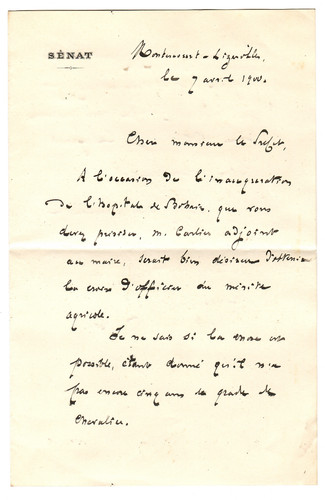 SÉNAT
Montescourt-Lizerolles,
le 7 avril 1900.
Cher monsieur le Préfet,
A l'occasion de l'inauguration
de l'hôpital de Bohain, que vous
devez présider, m. Carlier adjoint
au maire, serait bien désireux d'obtenir
la croix d'officier du mérite
agricole.
Je ne sais si la chose est
possible, étant donné qu'il n'a
pas encore cinq ans de grade de
chevalier.